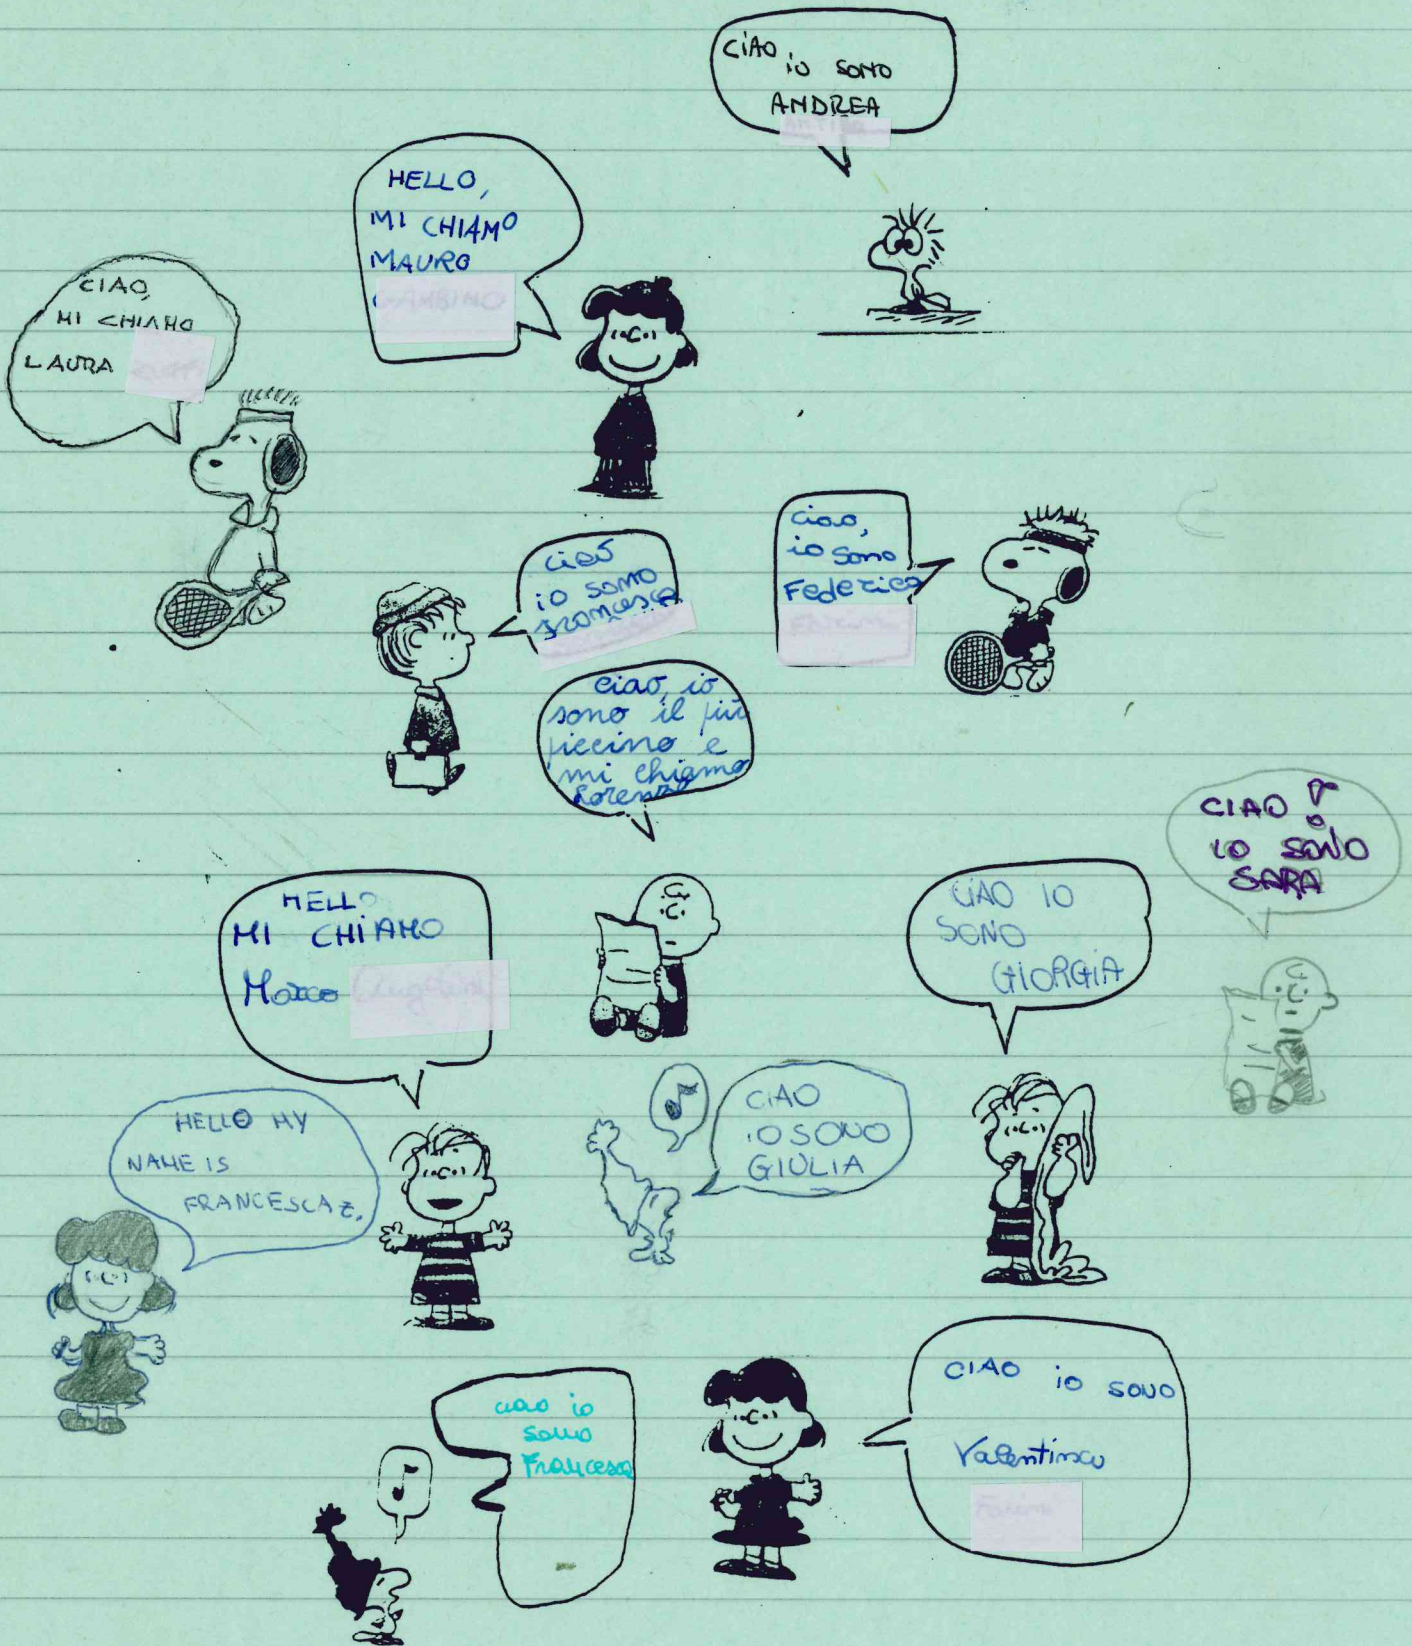 CiAO
iO SONO
ANDREA
HELLO,
MI CHIAMO
MAURO
CIAO,
MI CHIAMO
LAURA
ciao,
io sono
Federico
ciao
iO sono
francesca
ciao, io
sono il più
piccino e
mi chiamo
Lorenzo
CIAO !
IO SONO
SARA
HELLO
MI CHiAMO
Marco
CIAO IO
SONO
GIORGIA
CIAO
IO SONO
GIULIA
HELLO MY
NAME IS
FRANCESCA Z.
ciao io
sono
Francesca
CIAO io SONO
Valentina